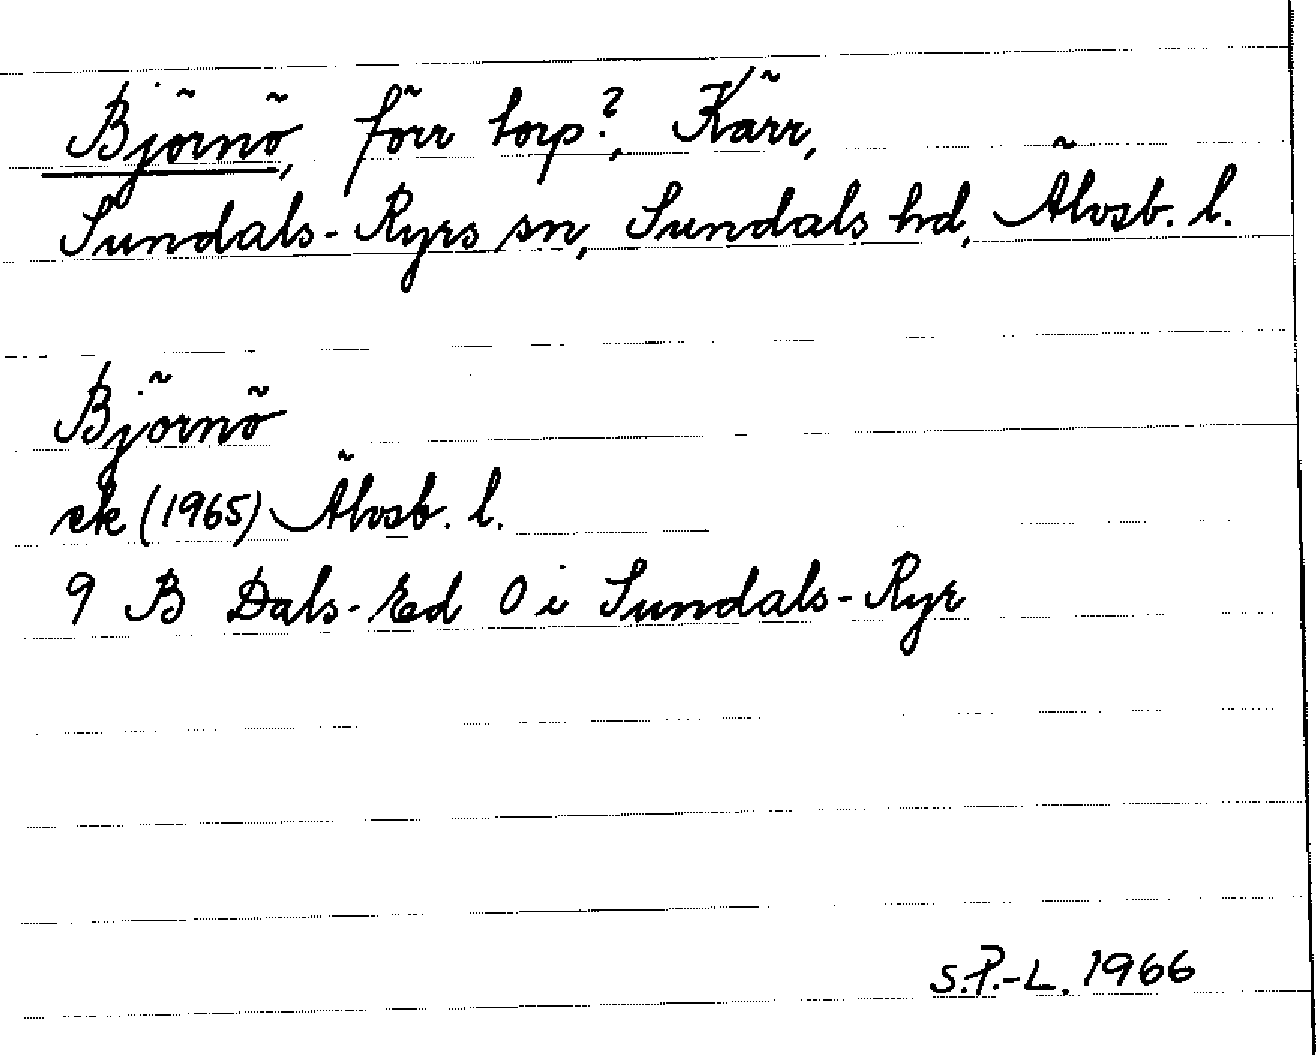 Björnö, förr torp?, Kärr,
Sundals-Ryrs sn, Sundals hd, Älvsb. l.
Björnö
ek (1965) Älvsb. l.
9 B Dals-Ed O i Sundals-Ryr
S.P.-L. 1966